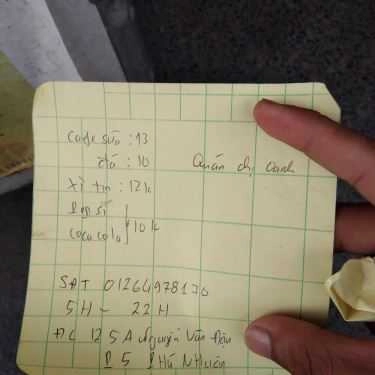 Cafe sữa : 13
đá : 10
Quán chị Oanh
Xì tin : 12k
Pepsi
Coca cola 10k
SĐT 01264978170
5H - 22H
ĐC 125A Nguyễn Văn Đậu
P5 Phú Nhuận